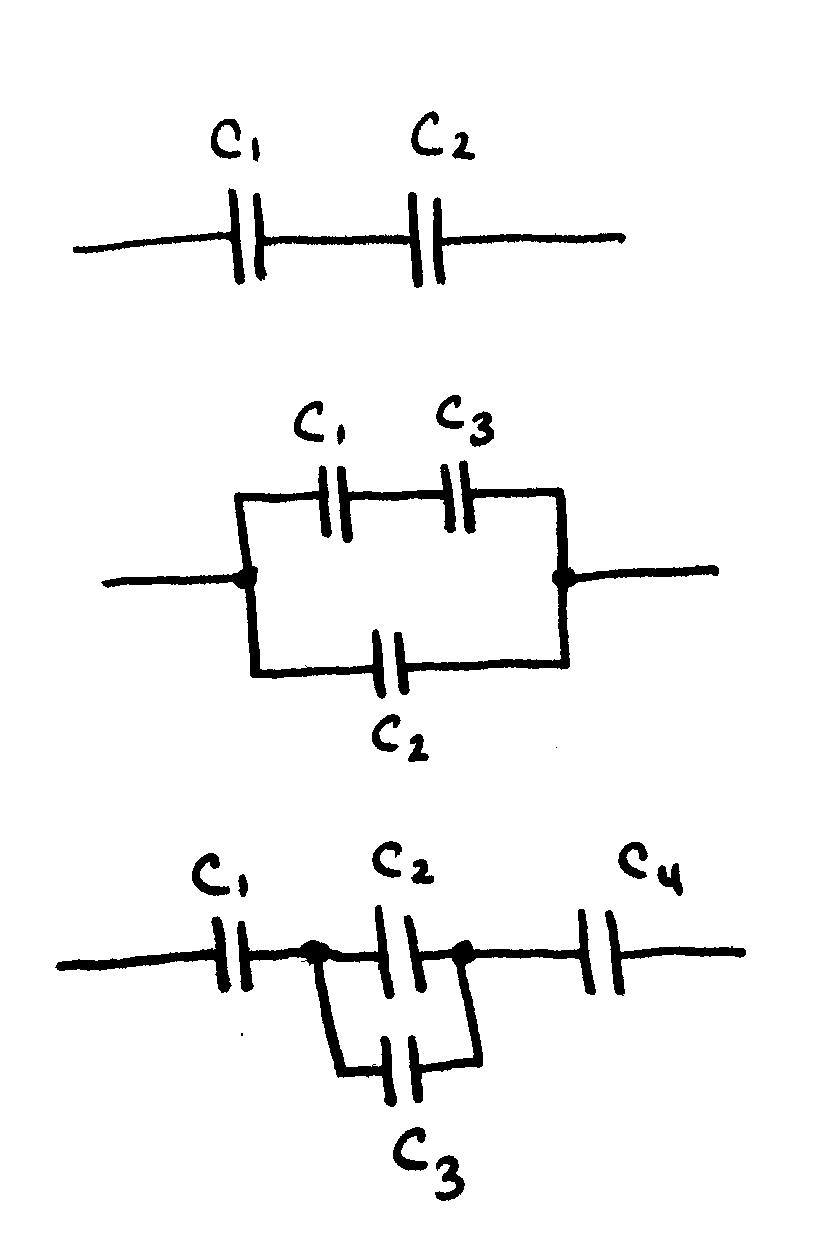 C₁ C₂
C₁ C₃
C₂
C₁ C₂ C₄
C₃